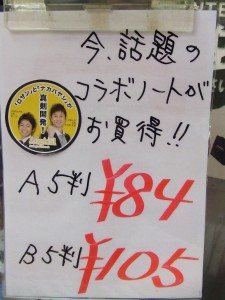 今、話題の
コラボノートが
お買得!!
「ロザン」と「ナカバヤシ」が
真剣開発!
A5判 ¥84
B5判 ¥105